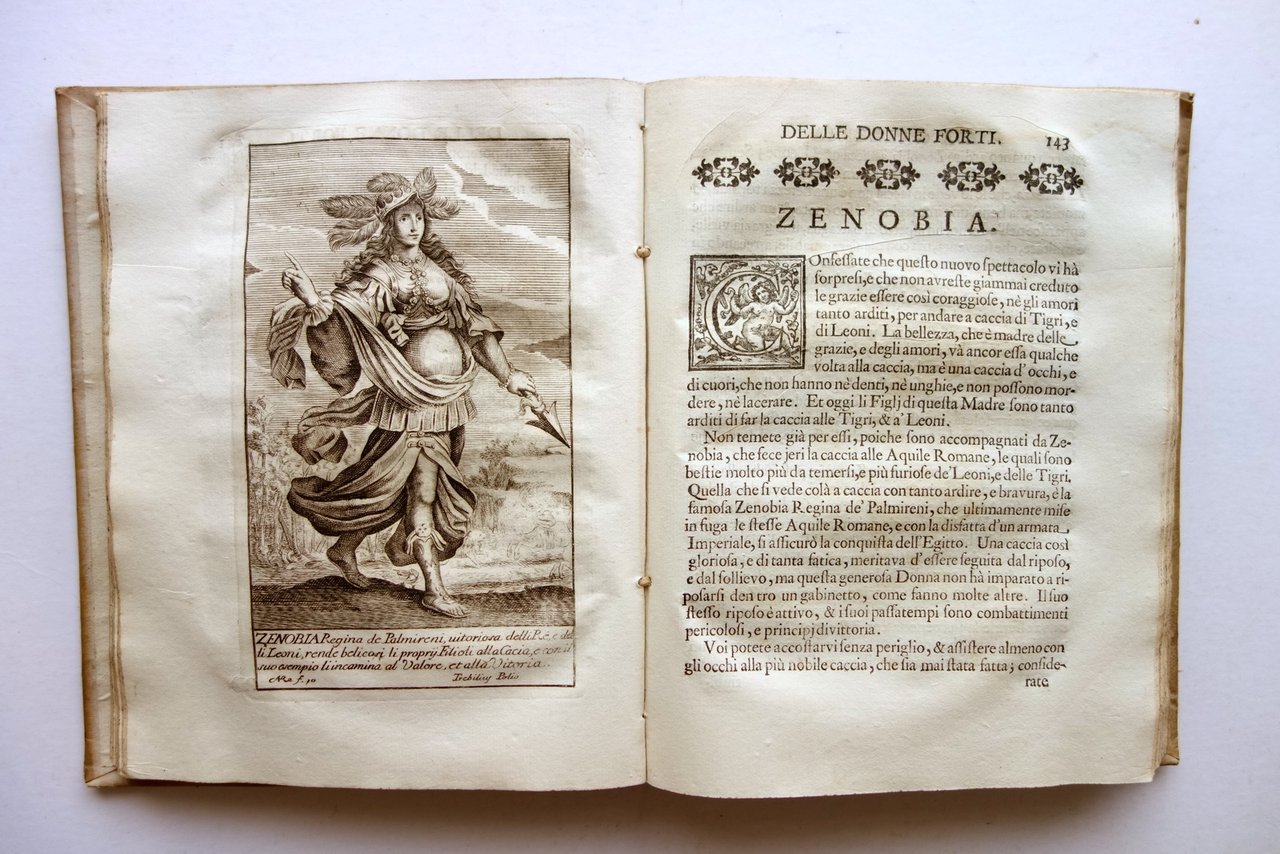 ZENOBIA Regina de Palmireni, uitoriosa delli Rè, e del
li Leoni, rende belicosi li proprij Filioli alla Cacia, e con il
suo esempio li incamina al Valore, et alla Vitoria.
f.
Trebilius Polio
DELLE DONNE FORTI. 143
ZENOBIA.
COnfeſſate che queſto nuovo ſpettacolo vi hà
ſorpreſi, e che non avreſte giammai creduto
le grazie eſſere così coraggioſe, nè gli amori
tanto arditi, per andare a caccia di Tigri, e
di Leoni. La bellezza, che è madre delle
grazie, e degli amori, và ancor eſſa qualche
volta alla caccia, ma è una caccia d' occhi, e
di cuori, che non hanno nè denti, nè unghie, e non poſſono mor-
dere, nè lacerare. Et oggi li Figlj di queſta Madre sono tanto
arditi di far la caccia alle Tigri, & a' Leoni.
Non temete già per eſſi, poiche ſono accompagnati da Ze-
nobia, che fece jeri la caccia alle Aquile Romane, le quali ſono
beſtie molto più da temerſi, e più furioſe de' Leoni, e delle Tigri.
Quella che ſi vede colà a caccia con tanto ardire, e bravura, è la
famoſa Zenobia Regina de' Palmireni, che ultimamente miſe
in fuga le ſteſſe Aquile Romane, e con la disfatta d'un armata
Imperiale, ſi aſſicurò la conquiſta dell'Egitto. Una caccia così
glorioſa, e di tanta fatica, meritava d' eſſere ſeguita dal ripoſo,
e dal ſollievo, ma queſta generoſa Donna non hà imparato a ri-
poſarſi den tro un gabinetto, come fanno molte altre. Il ſuo
ſteſſo ripoſo è attivo, & i ſuoi paſſatempi sono combattimenti
pericoloſi, e principj di vittoria.
Voi potete accoſtarvi ſenza periglio, & aſſiſtere almeno con
gli occhi alla più nobile caccia, che ſia mai ſtata fatta; conſide-
rate